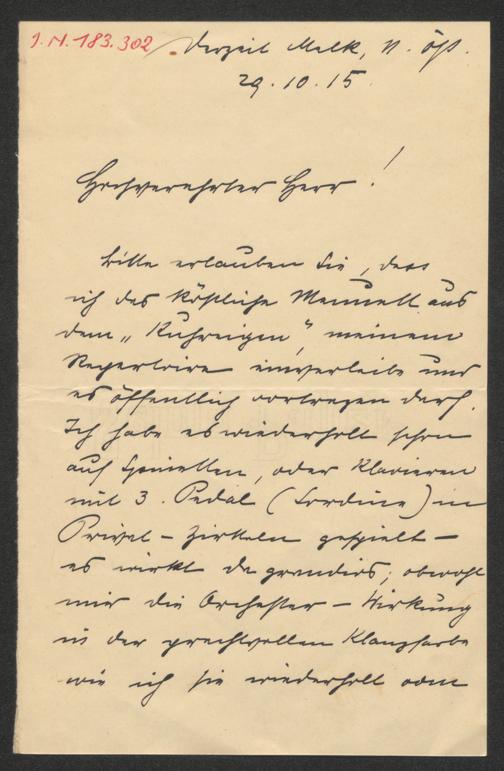 I.N. 183.302
Derzeit Melk, N. Öst.
29.10.15.
Hochverehrter Herr!
bitte erlauben Sie, dass
ich das köstliche Menuett aus
dem „Kuhreigen“, meinem
Repertoire einverleibe und
es öffentlich vortragen darf.
Ich habe es wiederholt schon
auf Spinetten, oder Klavieren
mit 3. Pedal (Sordine) in
Privat-Zirkeln gespielt –
es wirkt da grandios; obwohl
mir die Orchester-Wirkung
in der prachtvollen Klangfarbe
wie ich sie wiederholt vom